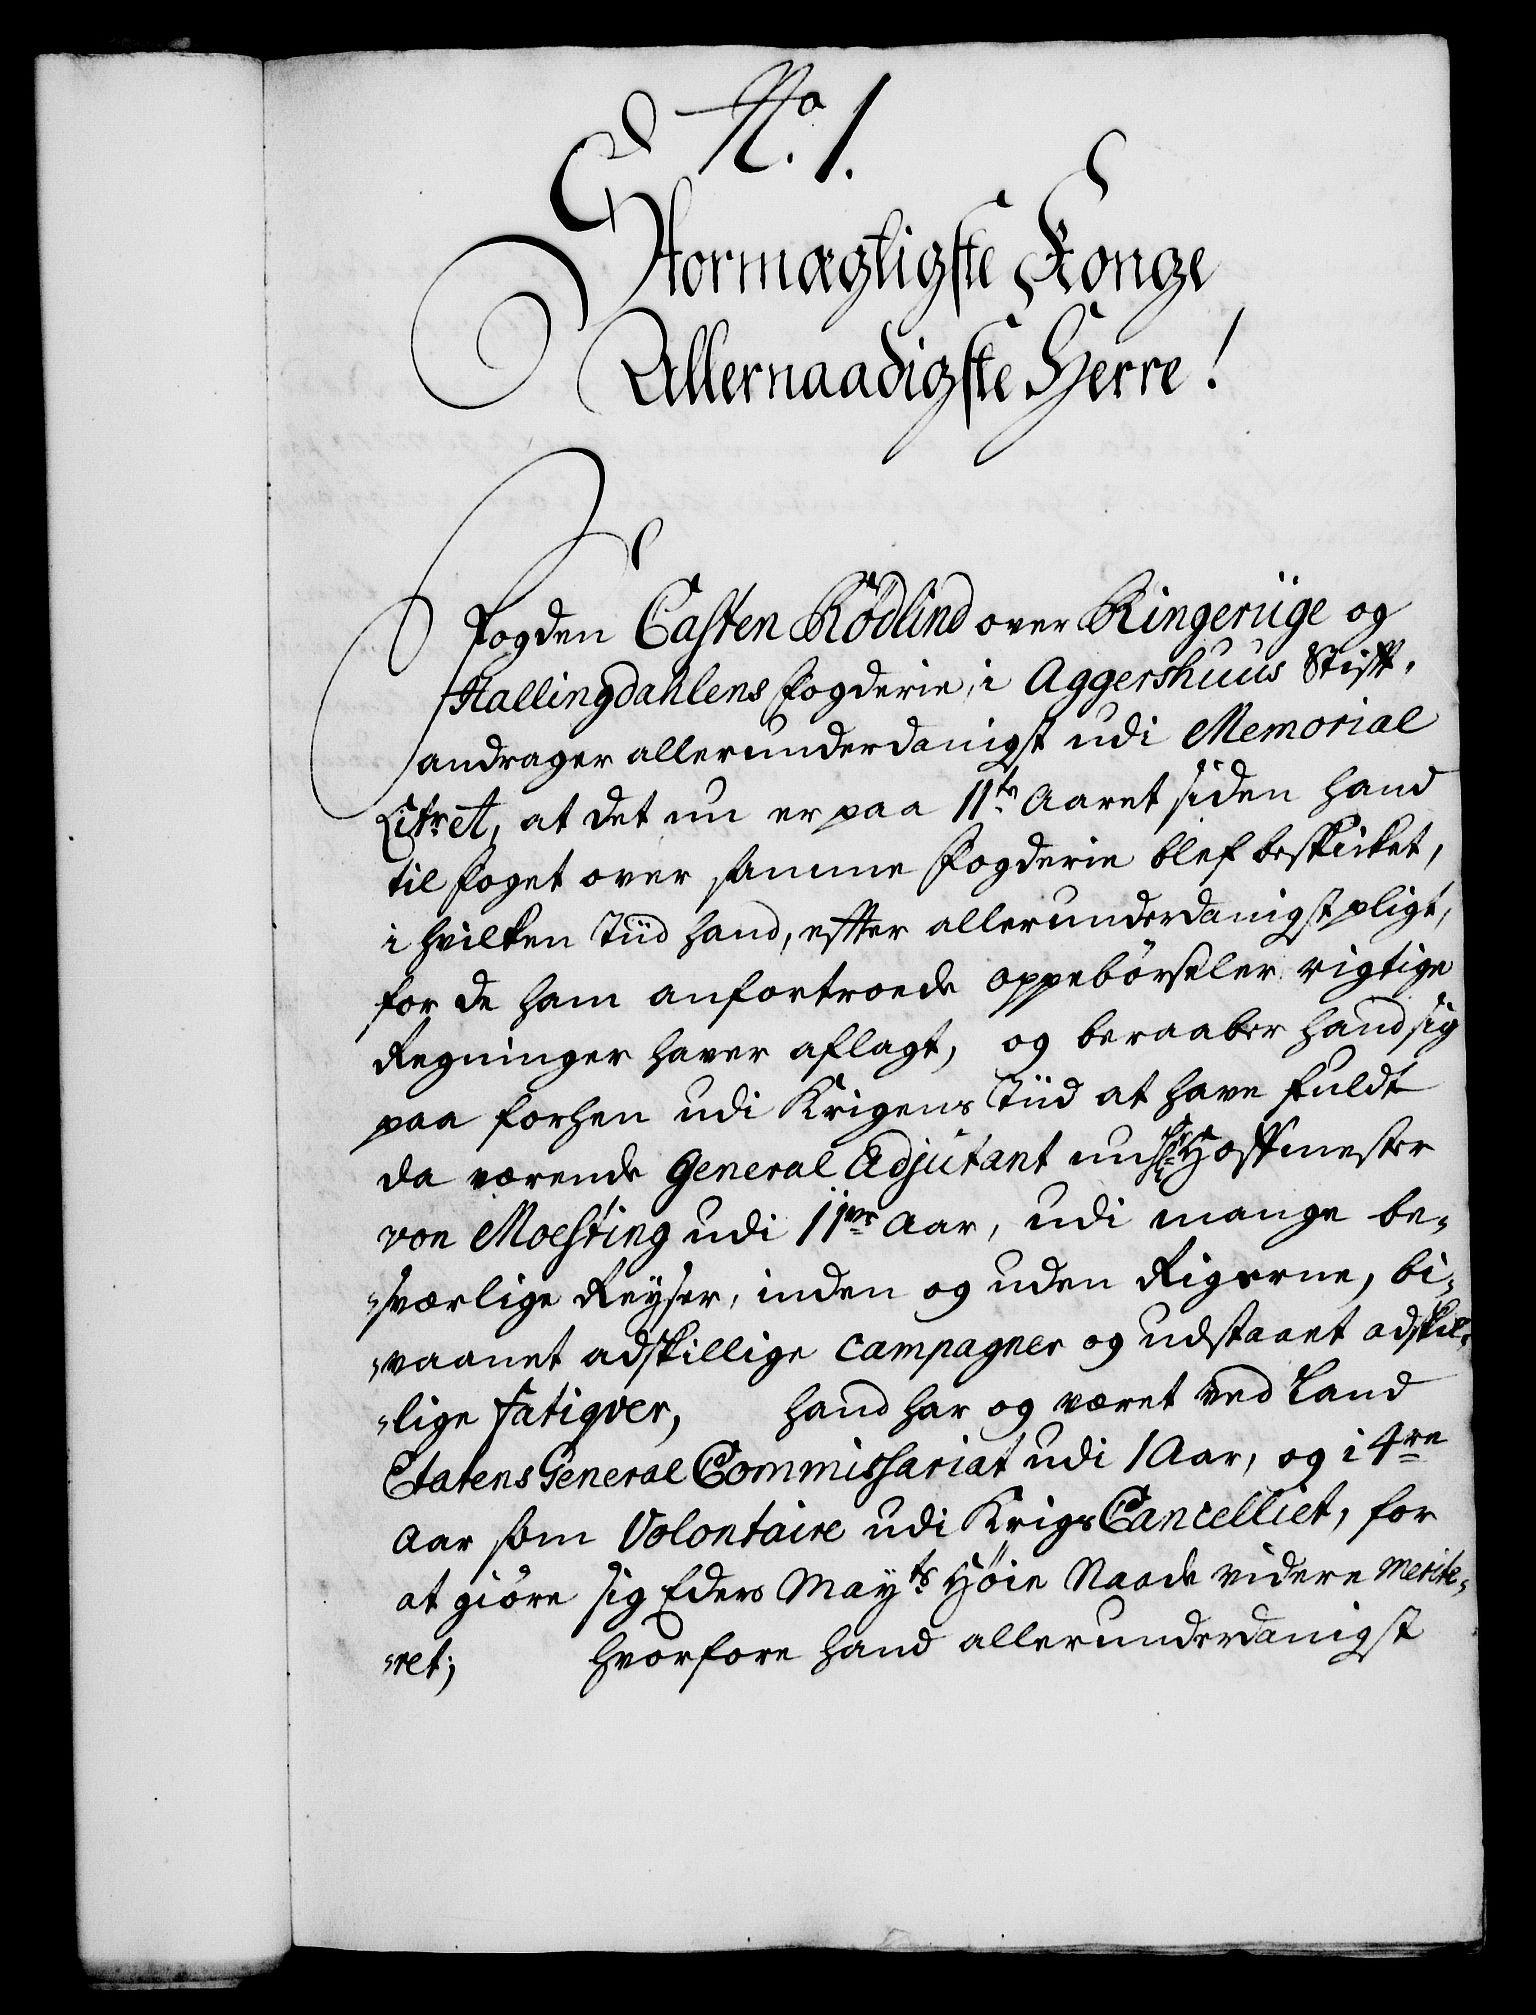 No. 1.
Stormægtigste Konge
Allernaadigste Herre!
Fogden Casten Rödlind over Ringeriige og
Hallingdahlens Fogderie, i Aggershuus Stift,
andrager allerunderdanigst udi Memorial
Litr et, at det nu er paa 11te Aaret siden hand
til Foget over samme Fogderie blef beskicket,
i hvilken Tiid hand, effter allerunderdanigst pligt,
for de ham anfortroede oppebörseler rigtige
Regninger haver aflagt, og beraaber hand sig
paa forhen udi Krigens Tiid at have fuldt
da værende General Adjutant nu Hoffmester
von Moesting udi 11ve Aar, udi mange be-
sværlige Reyser, inden og uden Rigerne, bi-
vaanet adskillige Campagner og udstaaet adskil-
lige Fatiqver, hand har og været ved Land
Etatens General Commissariat udi 1 Aar, og i 4re
Aar som Volontaire udi Krigs Cancelliet, for
at giöre sig Eders Mayts Höie Naade videre merite-
ret; hvorfore hand allerunderdanigst